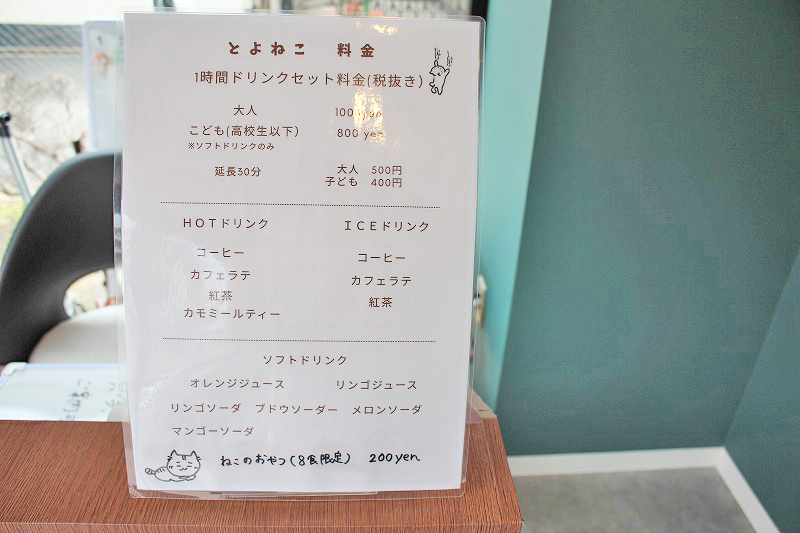 とよねこ 料金
1時間ドリンクセット料金(税抜き)
大人 1000 yen
こども(高校生以下) 800 yen
※ソフトドリンクのみ
延長30分 大人 500円
子ども 400円
HOTドリンク ICEドリンク
コーヒー コーヒー
カフェラテ カフェラテ
紅茶 紅茶
カモミールティー
ソフトドリンク
オレンジジュース リンゴジュース
リンゴソーダ ブドウソーダー メロンソーダ
マンゴーソーダ
ねこのおやつ(8食限定) 200yen